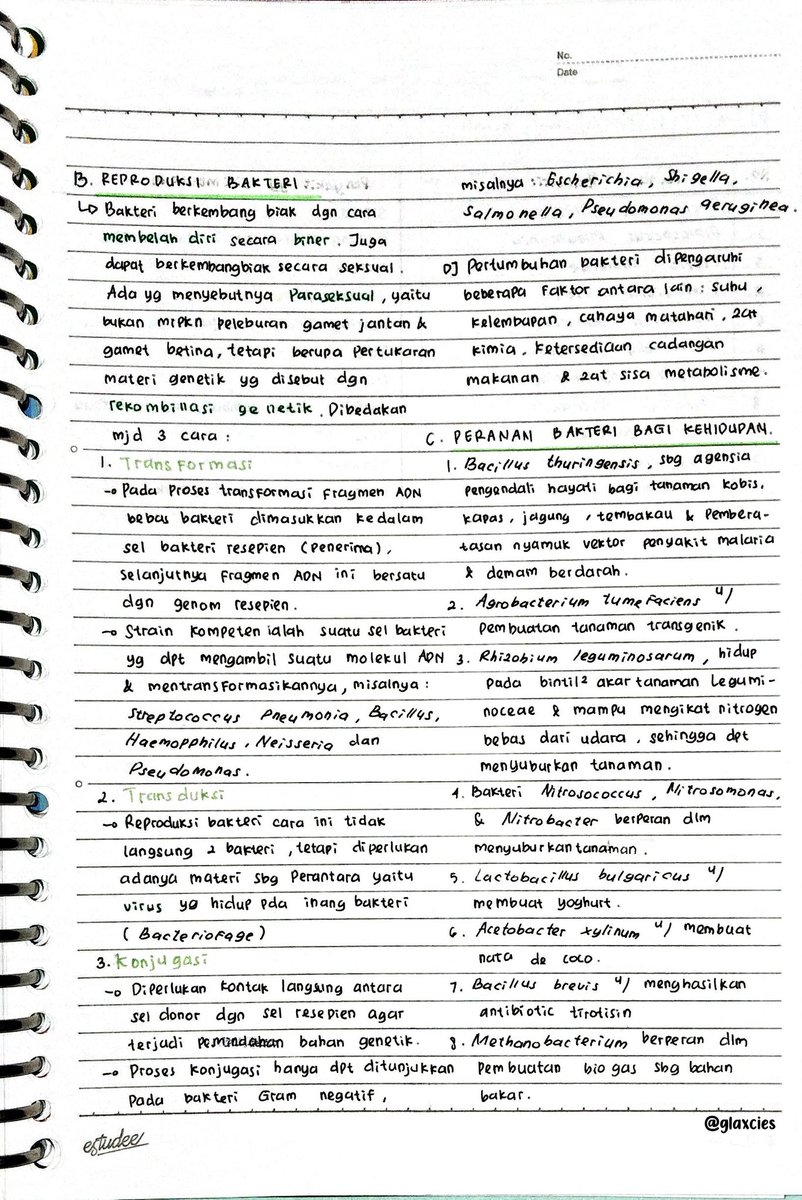 No.
Date
B. REPRODUKSI BAKTERI
↳ Bakteri berkembang biak dgn cara
membelah diri secara biner. Juga
dapat berkembangbiak secara seksual.
Ada yg menyebutnya Paraseksual, yaitu
bukan mrpkn peleburan gamet jantan &
gamet betina, tetapi berupa Pertukaran
materi genetik yg disebut dgn
rekombinasi genetik. Dibedakan
mjd 3 cara :
1. Transformasi
→ Pada Proses transformasi Fragmen ADN
bebas bakteri dimasukkan kedalam
sel bakteri resepien (Penerima),
Selanjutnya Fragmen ADN ini bersatu
dgn genom resepien.
→ Strain kompeten ialah suatu sel bakteri
yg dpt mengambil suatu molekul ADN
& mentransformasikannya, misalnya :
Streptococcus Pneumonia, Bacillus,
Haemopphilus, Neisseria dan
Pseudomonas.
2. Transduksi
→ Reproduksi bakteri cara ini tidak
langsung 2 bakteri, tetapi diperlukan
adanya materi sbg Perantara yaitu
virus yg hidup pda inang bakteri
(Bacteriofage)
3. Konjugasi
→ Diperlukan kontak langsung antara
sel donor dgn sel resepien agar
terjadi pemindahan bahan genetik.
→ Proses konjugasi hanya dpt ditunjukkan
Pada bakteri Gram negatif,
misalnya : Escherichia, Shigella,
Salmonella, Pseudomonas aeruginea.
D] Pertumbuhan bakteri dipengaruhi
beberapa Faktor antara lain : suhu,
kelembapan, cahaya matahari, zat
kimia, ketersediaan cadangan
makanan & zat sisa metabolisme.
C. PERANAN BAKTERI BAGI KEHIDUPAN.
1. Bacillus thuringensis, sbg agensia
pengendali hayati bagi tanaman kobis,
kapas, jagung, tembakau & Pembera-
tasan nyamuk vektor penyakit malaria
& demam berdarah.
2. Agrobacterium tumefaciens u/
Pembuatan tanaman transgenik.
3. Rhizobium leguminosarum, hidup
Pada bintil² akar tanaman Legumi-
noceae & mampu mengikat nitrogen
bebas dari udara, sehingga dpt
menyuburkan tanaman.
4. Bakteri Nitrosococcus, Nitrosomonas,
& Nitrobacter berperan dlm
menyuburkan tanaman.
5. Lactobacillus bulgaricus u/
membuat yoghurt.
6. Acetobacter xylinum u/ membuat
nata de coco.
7. Bacillus brevis u/ menghasilkan
antibiotic tirotisin
8. Methanobacterium berperan dlm
Pembuatan bio gas sbg bahan
bakar.
@glaxcies
estudee